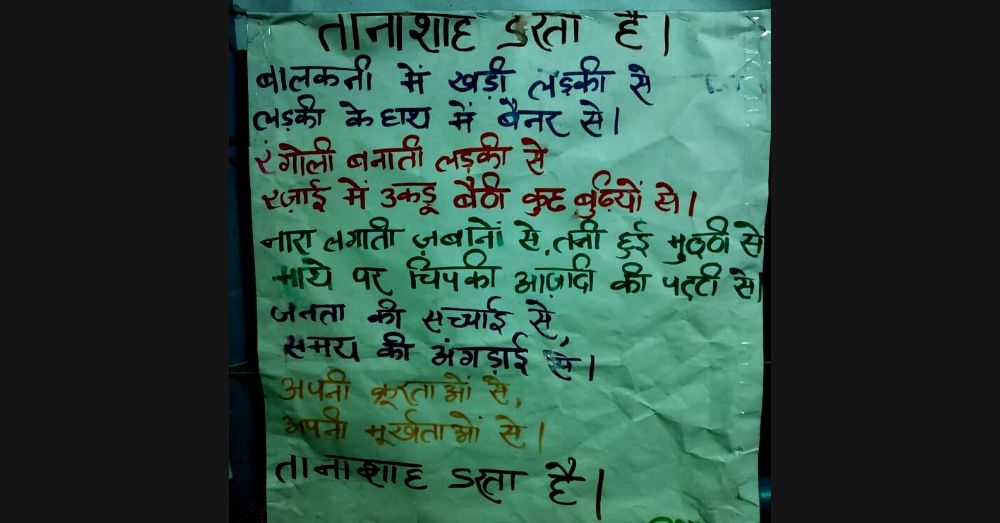 तानाशाह डरता है।
बालकनी में खड़ी लड़की से
लड़की के हाथ में बैनर से।
रंगोली बनाती लड़की से
रज़ाई में उकडू बैठी कुछ बुढ़ियों से।
नारा लगाती ज़बानों से, तनी हुई मुठ्ठी से
माथे पर चिपकी आज़ादी की पट्टी से।
जनता की सच्चाई से,
समय की अंगड़ाई से।
अपनी क्रूरताओं से,
अपनी मूर्खताओं से।
तानाशाह डरता है।